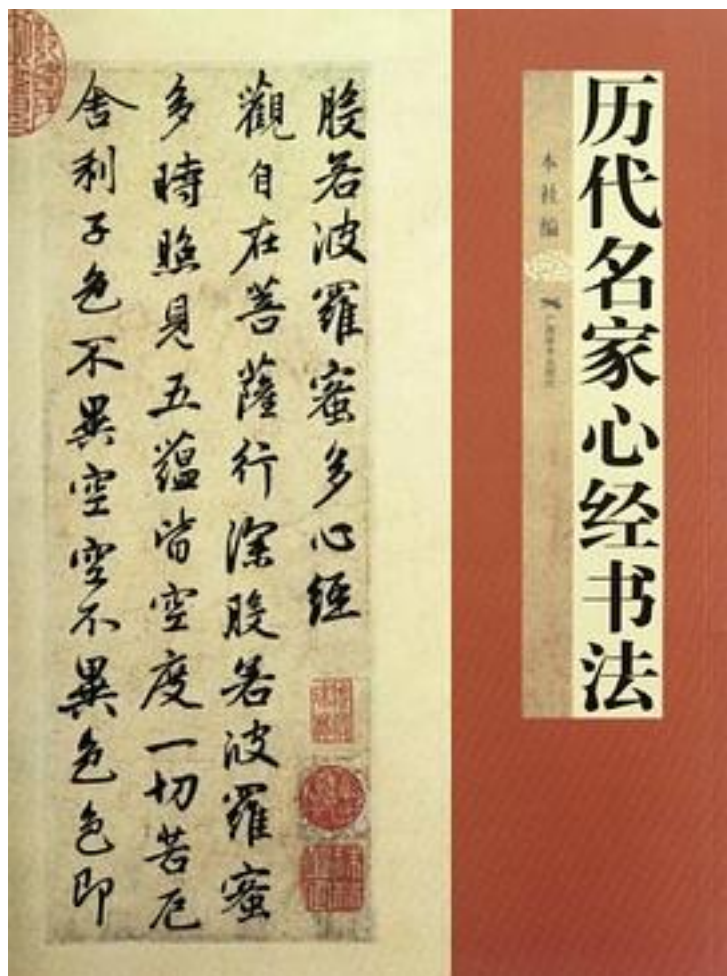 历代名家心经书法
本社编
般若波羅蜜多心經
觀自在菩薩行深般若波羅蜜
多時照見五蘊皆空度一切苦厄
舍利子色不異空空不異色色即